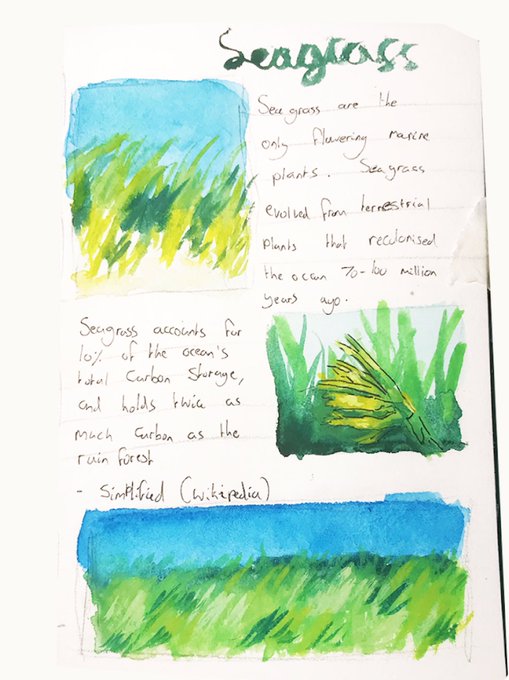 Seagrass
Seagrass are the
only flowering marine
plants. Seagrass
evolved from terrestrial
plants that recolonised
the ocean 70-100 million
years ago.
Seagrass accounts for
10% of the ocean's
total Carbon Storage,
and holds twice as
much Carbon as the
rain forest
- Simplified (wikipedia)